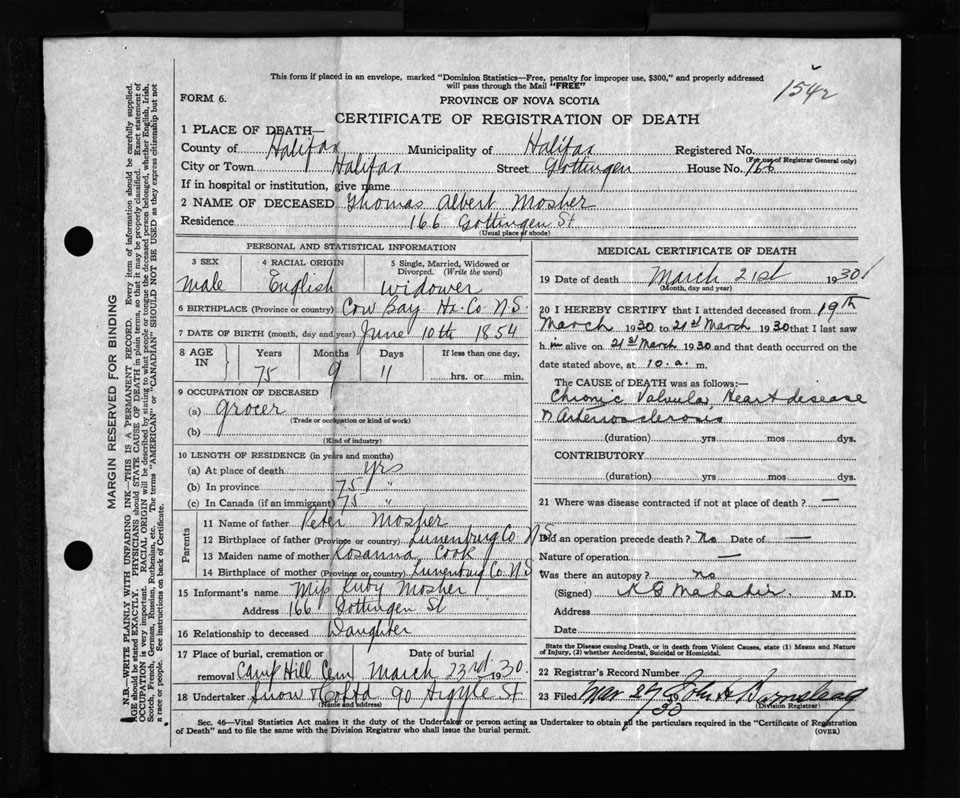 154
This form if placed in an envelope, marked "Dominion Statistics—Free, penalty for improper use, $300," and properly addressed
will pass through the Mail "FREE"
FORM 6.
PROVINCE OF NOVA SCOTIA
CERTIFICATE OF REGISTRATION OF DEATH
1 PLACE OF DEATH—
County of Halifax Municipality of Halifax Registered No.
(For use of Registrar General only)
City or Town Halifax Street Gottingen House No. 166
If in hospital or institution, give name
2 NAME OF DECEASED Thomas Albert Mosher
Residence 166 Gottingen St
(Usual place of abode)
PERSONAL AND STATISTICAL INFORMATION
3 SEX 4 RACIAL ORIGIN 5 Single, Married, Widowed or
Divorced. (Write the word)
Male English Widower
6 BIRTHPLACE (Province or country) Cow Bay Hx. Co N.S.
7 DATE OF BIRTH (month, day and year) June 10th 1854
8 AGE IN Years Months Days If less than one day,
75 9 11 hrs. or min.
9 OCCUPATION OF DECEASED
(a) Grocer
(Trade or occupation or kind of work)
(b)
(Kind of industry)
10 LENGTH OF RESIDENCE (in years and months)
(a) At place of death yrs
(b) In province 75 "
(c) In Canada (if an immigrant) 75 "
Parents
11 Name of father Peter Mosher
12 Birthplace of father (Province or country) Lunenburg Co. N.S
13 Maiden name of mother Rosanna Cook
14 Birthplace of mother (Province or country) Lunenburg Co. N.S
15 Informant's name Miss Ruby Mosher
Address 166 Gottingen St
16 Relationship to deceased Daughter
17 Place of burial, cremation or Date of burial
removal Camp Hill Cem March 23rd 1930
18 Undertaker Snow & Co Ltd 90 Argyle St
(Name and address)
MEDICAL CERTIFICATE OF DEATH
19 Date of death March 21st 1930
(Month, day and year)
20 I HEREBY CERTIFY that I attended deceased from 19th
March 1930 to 21st March 1930 that I last saw
h im alive on 21st March 1930 and that death occurred on the
date stated above, at 10. a. m.
The CAUSE OF DEATH was as follows:—
Chronic Valvular Heart disease
Arteriosclerosis
(duration) yrs mos dys.
CONTRIBUTORY
(duration) yrs mos dys.
21 Where was disease contracted if not at place of death? —
Did an operation precede death? No Date of —
Nature of operation —
Was there an autopsy? no
(Signed) M.D.
Address
Date
State the Disease causing Death, or in death from Violent Causes, state (1) Means and Nature
of Injury, (2) whether Accidental, Suicidal or Homicidal.
22 Registrar's Record Number
23 Filed Mar 27 1930 John H
(Division Registrar)
Sec. 46—Vital Statistics Act makes it the duty of the Undertaker or person acting as Undertaker to obtain all the particulars required in the "Certificate of Registration
of Death" and to file the same with the Division Registrar who shall issue the burial permit.
(OVER)
MARGIN RESERVED FOR BINDING
N.B.—WRITE PLAINLY WITH UNFADING INK—THIS IS A PERMANENT RECORD. Every item of information should be carefully supplied.
AGE should be stated EXACTLY. PHYSICIANS should STATE CAUSE OF DEATH in plain terms, so that it may be properly classified. Exact statement of
OCCUPATION is very important. RACIAL ORIGIN will be described by stating to what people or tongue the deceased person belonged, whether English, Irish,
Scotch, French, German, Russian, Ruthenian, etc. The terms "AMERICAN" or "CANADIAN" SHOULD NOT BE USED as they express citizenship but not
a race or people. See instructions on back of Certificate.